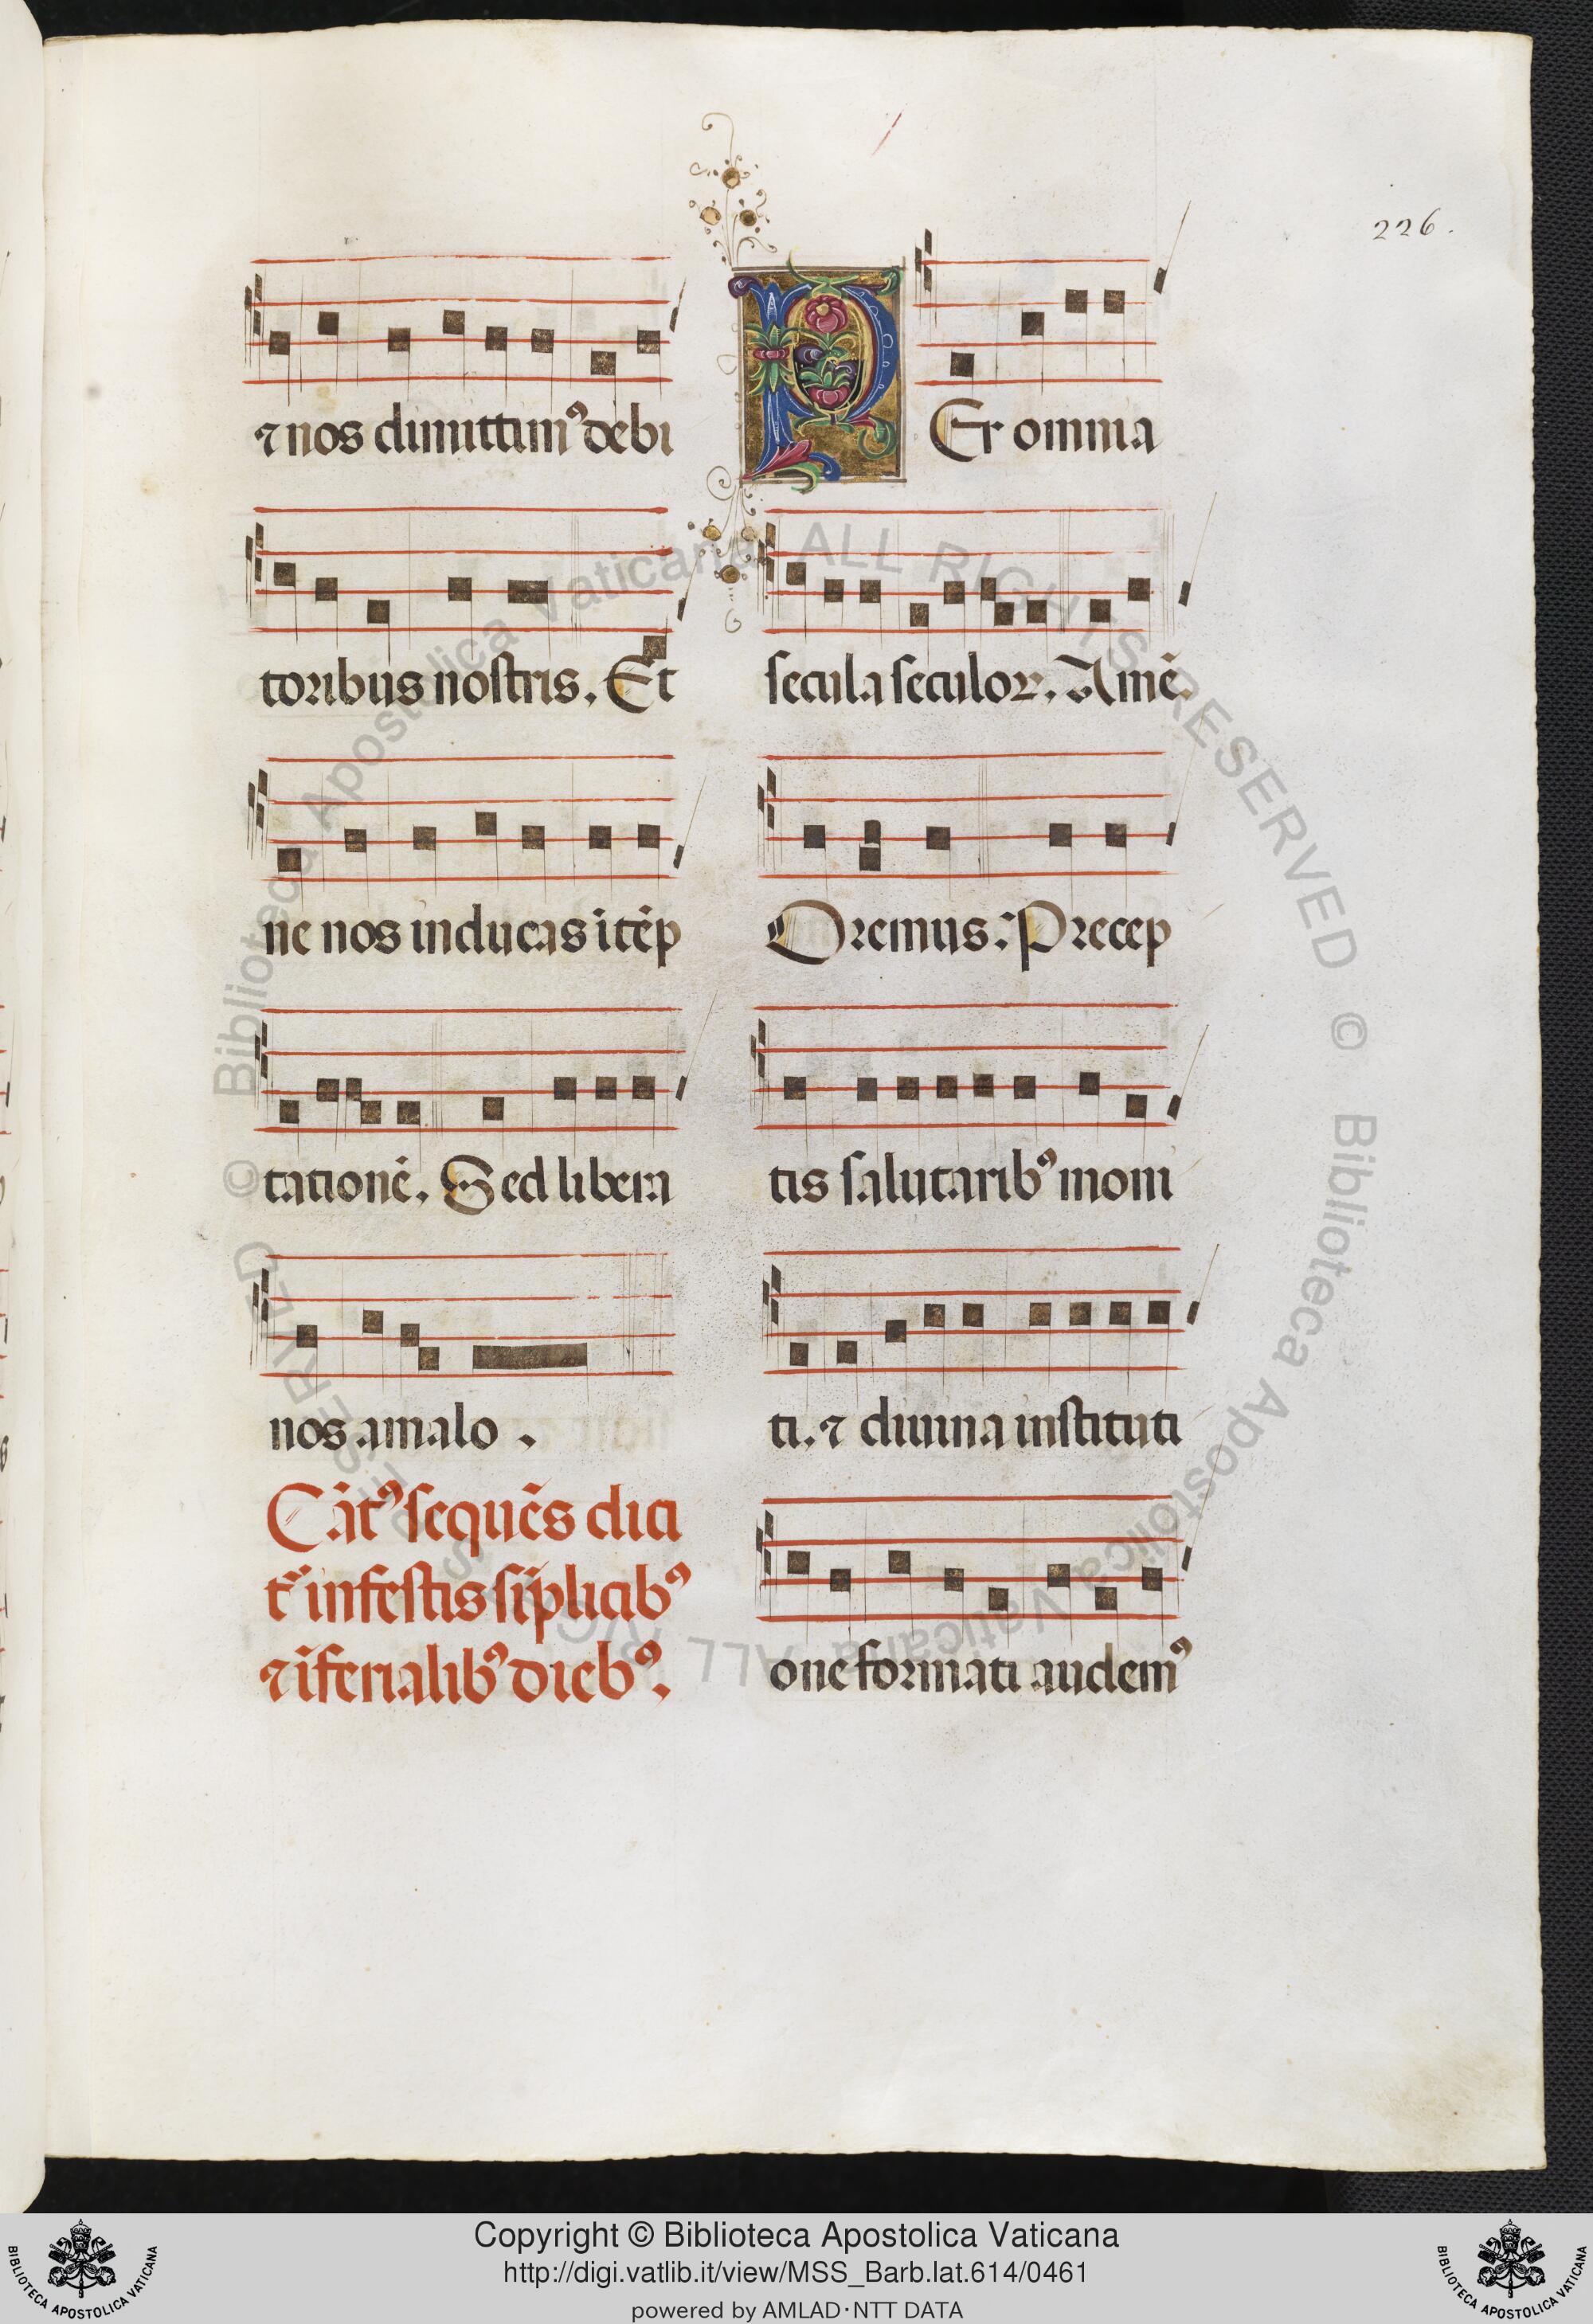 226.
⁊ nos dimittimꝰ debi
toribus nostris. Et
ne nos inducas ītēp
tationē. Sed libera
nos amalo.
Cāt᷒ sequēs dici
t᷑ infestis sīplicibꝰ
⁊ īferialibꝰ diebꝰ.
PEr omnia
secula seculoꝝ. Amē.
Oremus: Precep
tis salutaribꝰ moni
ti. ⁊ diuina instituti
one formati audemꝰ
© Biblioteca Apostolica Vaticana ALL RIGHTS RESERVED © Biblioteca Apostolica Vaticana ALL RIGHTS RESERVED
Copyright © Biblioteca Apostolica Vaticana
http://digi.vatlib.it/view/MSS_Barb.lat.614/0461
powered by AMLAD·NTT DATA
BIBLIOTECA APOSTOLICA VATICANA
BIBLIOTECA APOSTOLICA VATICANA